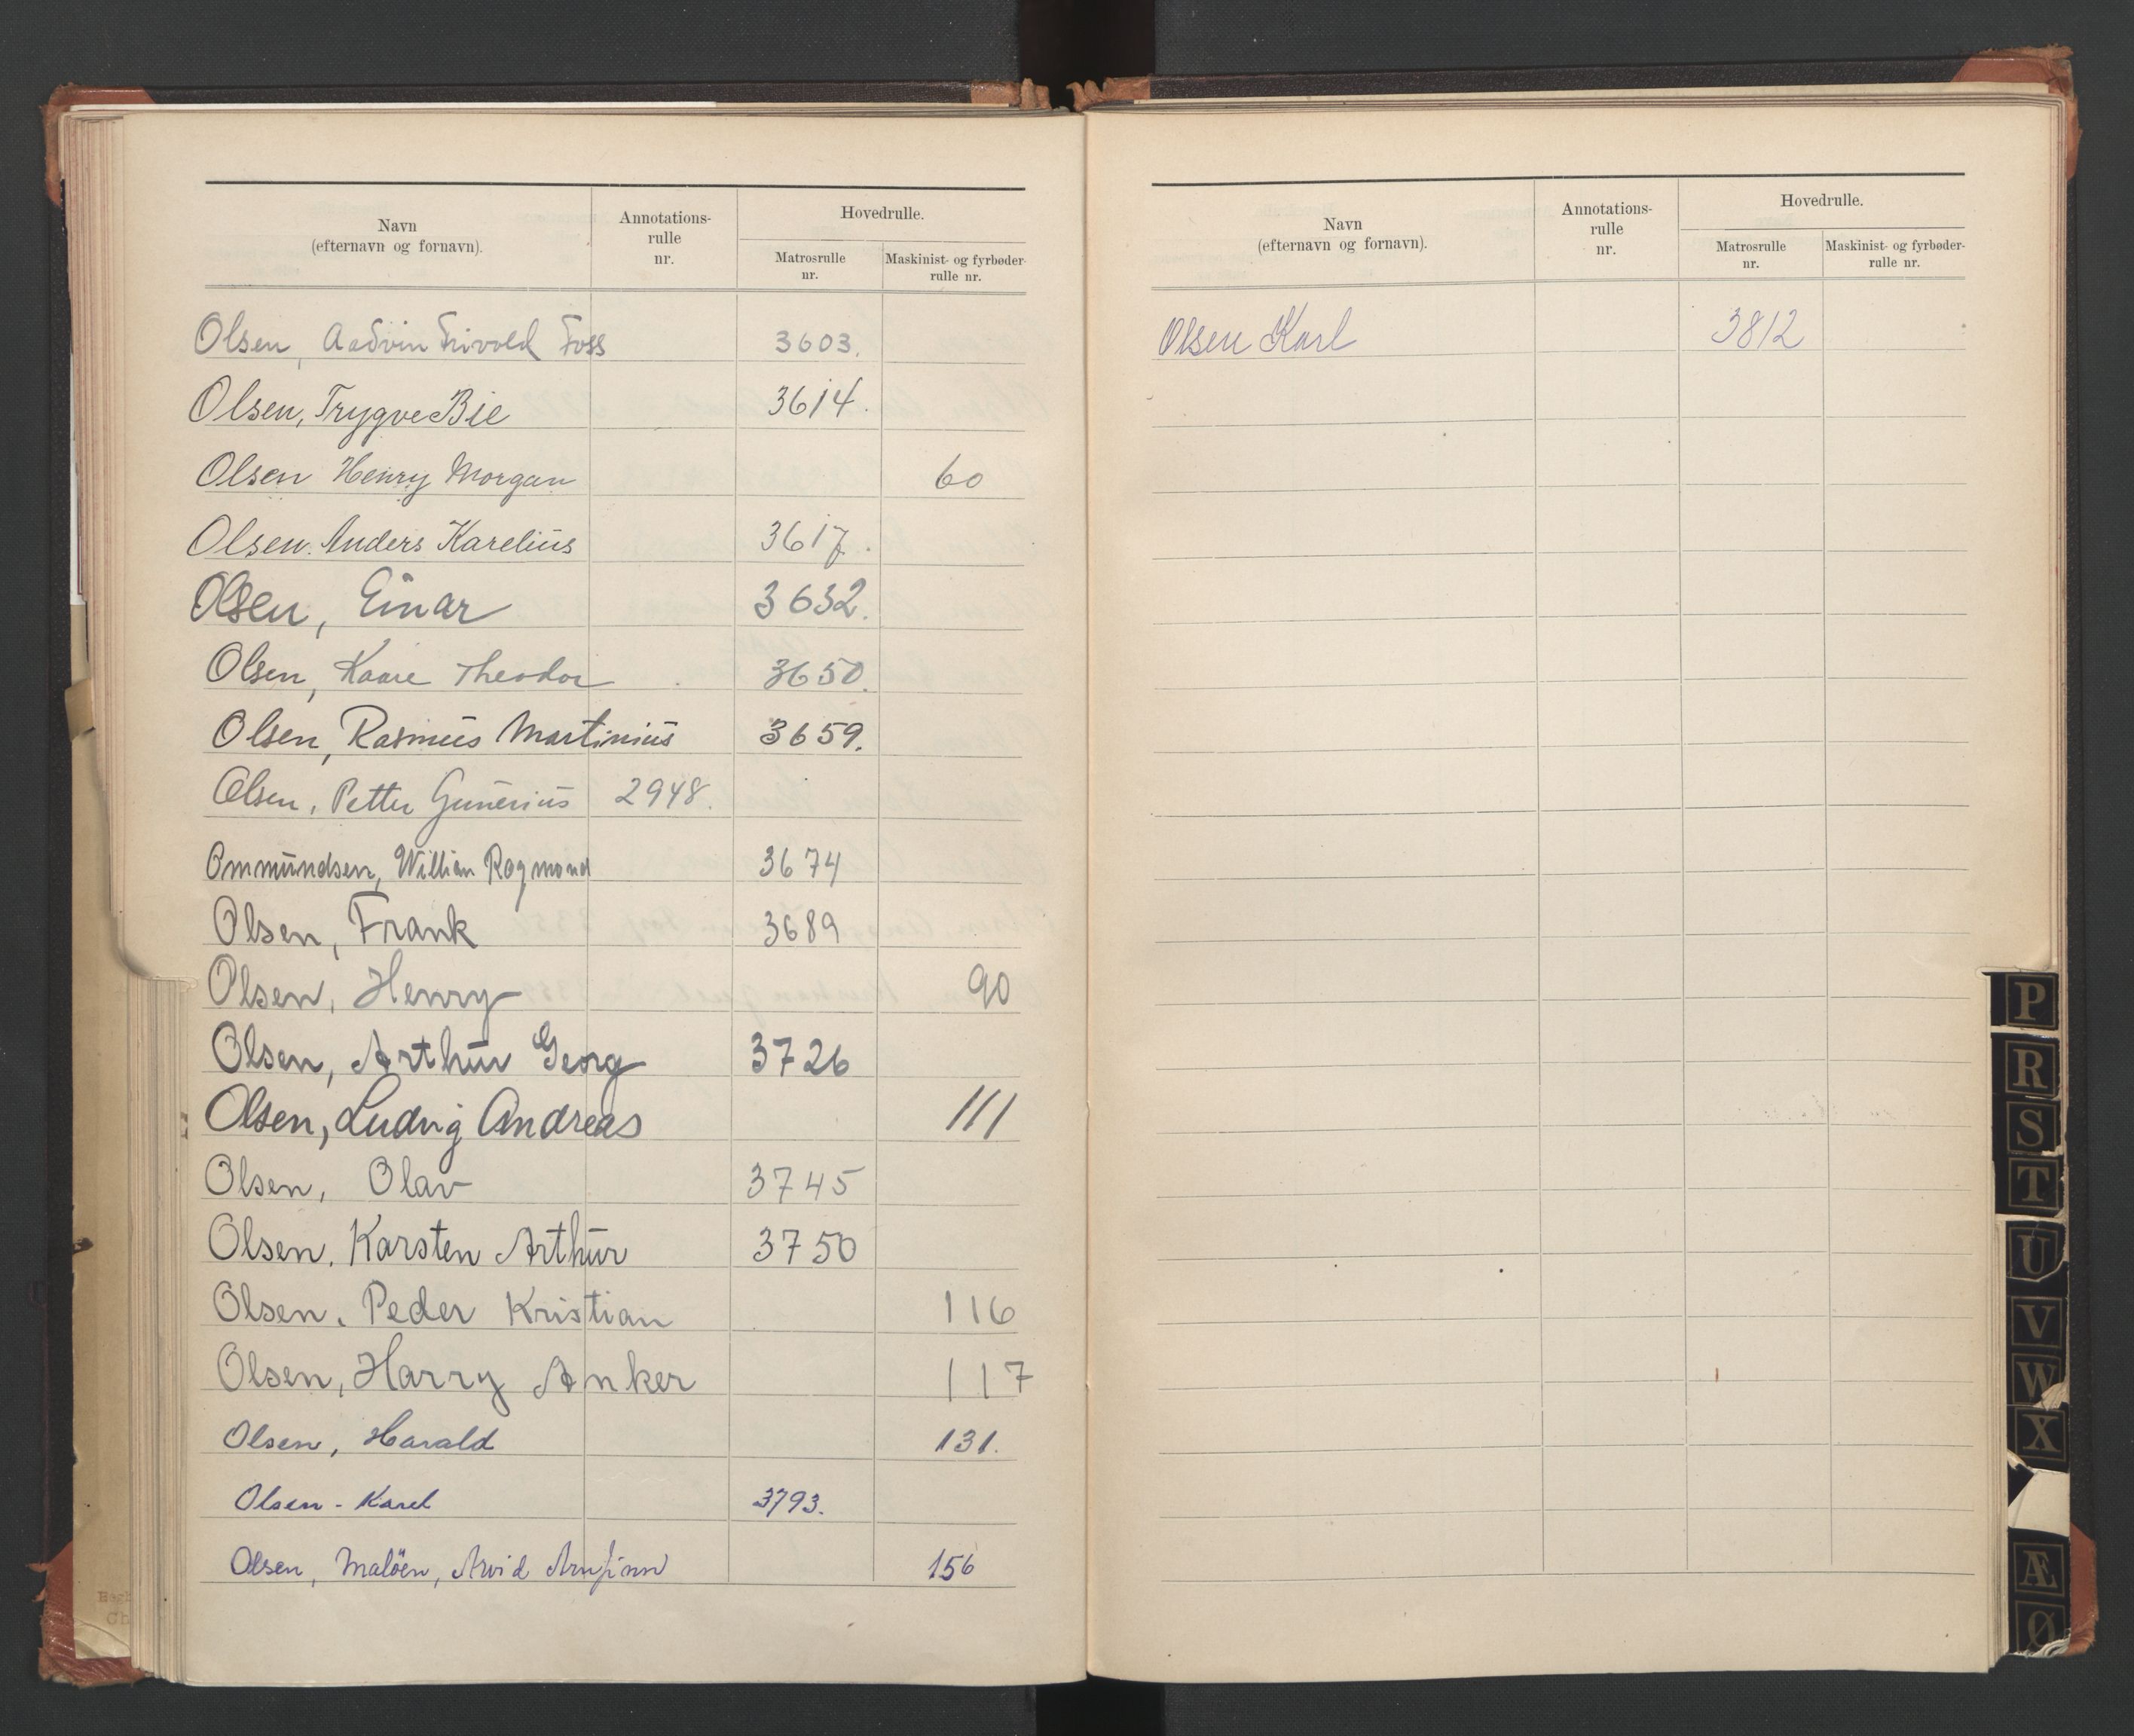 Navn
(efternavn og fornavn).
Annotations-
rulle
nr.
Hovedrulle.
Matrosrulle
nr.
Maskinist- og fyrbøder-
rulle nr.
Olsen, Aadvin Trivold Foss 3603.
Olsen, Trygve Bie 3614.
Olsen Henry Morgan 60
Olsen. Anders Karelius 3617.
Olsen, Einar 3632.
Olsen, Kaare Theodor 3650.
Olsen, Rasmus Martinius 3659.
Olsen, Petter Gunerius 2948.
Ommundsen, Willian Ragmond 3674
Olsen, Frank 3689
Olsen, Henry 90
Olsen, Arthur Georg 3726
Olsen, Ludvig Andreas 111
Olsen, Olav 3745
Olsen, Karsten Arthur 3750
Olsen. Peder Kristian 116
Olsen, Harry Anker 117
Olsen, Harald 131.
Olsen - Karel 3793.
Olsen, Maløen, Arvid Arnfinn 156
Navn
(efternavn og fornavn).
Annotations-
rulle
nr.
Hovedrulle.
Matrosrulle
nr.
Maskinist- og fyrbøder-
rulle nr.
Olsen Karl 3812
P
R
S
T
U
V
W
X
Æ
Ø